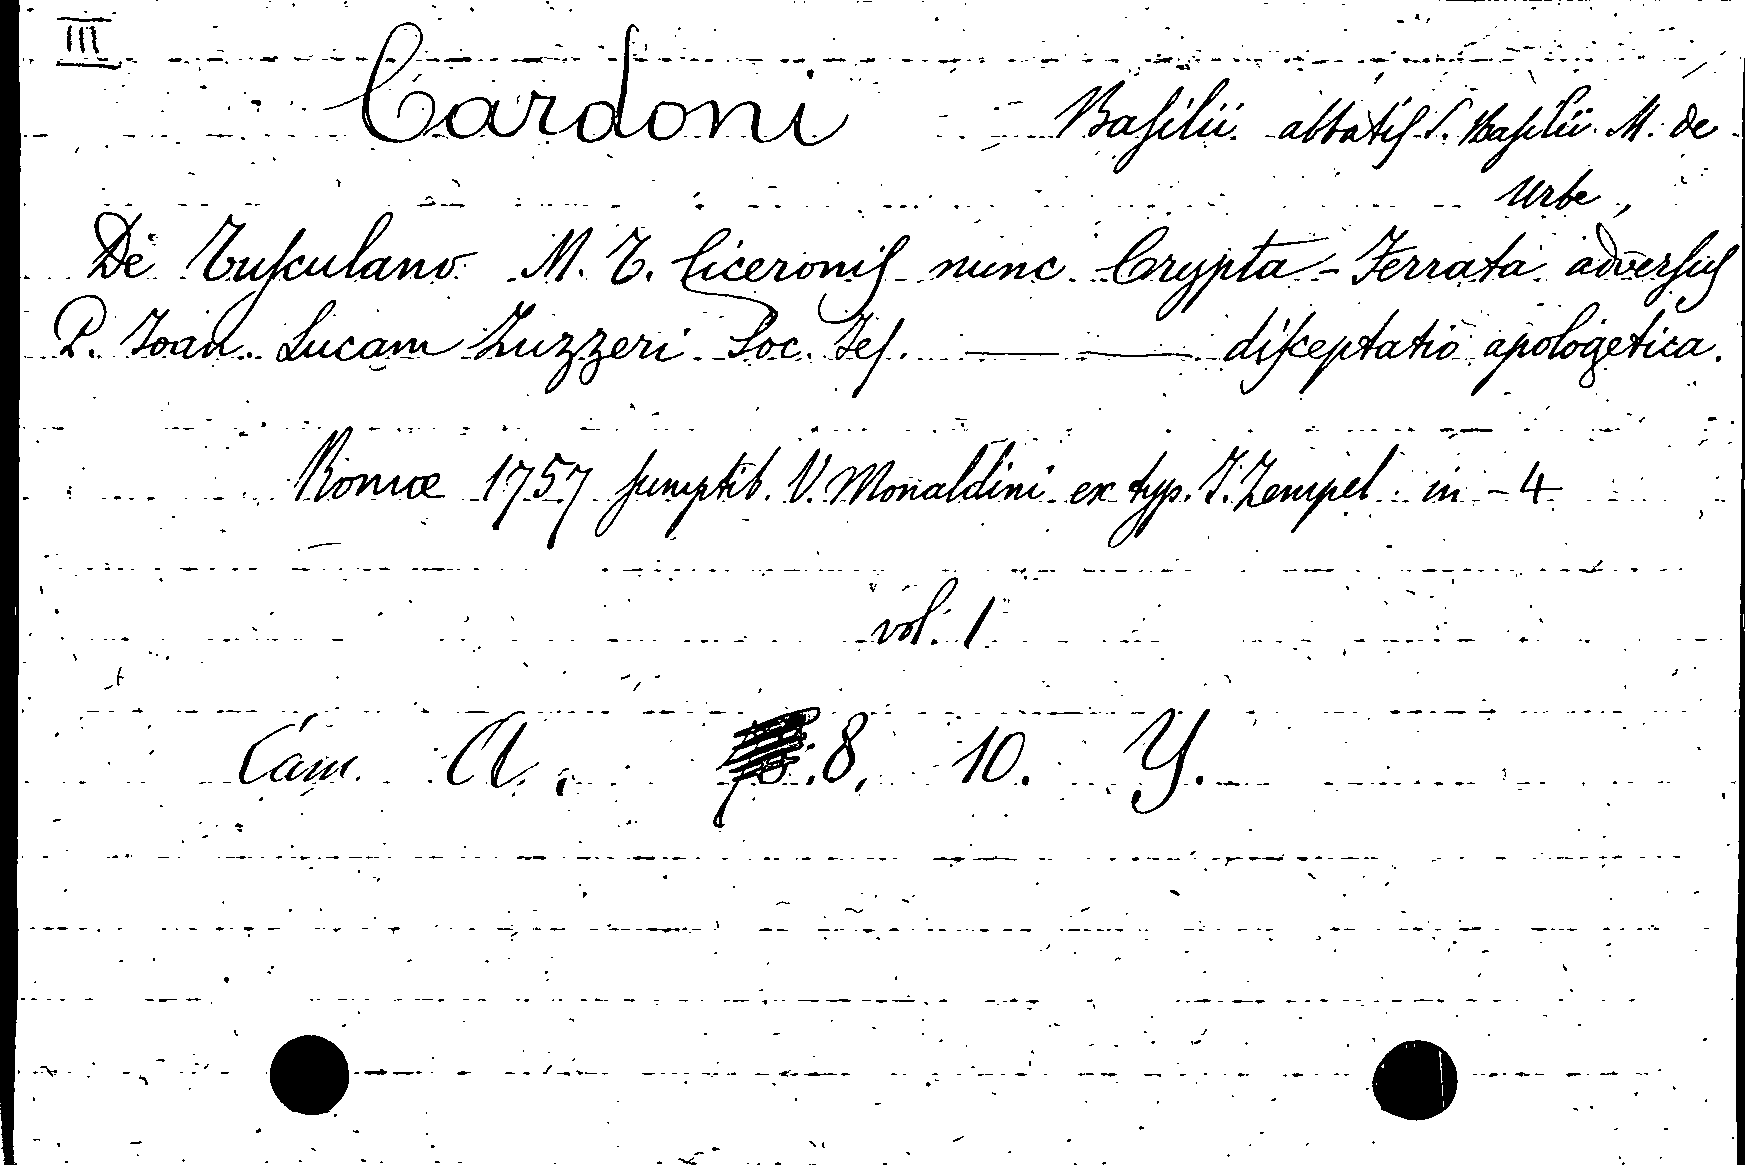 III
Cardoni Basilii abbatis S. Basilii M. de
Urbe,
De Tusculano M. T. Ciceronis nunc Crypta-Ferrata adversus
P. Joan. Lucam Zuzzeri Soc. Jes. — — disceptatio apologetica.
Romæ 1757 sumptib. V. Monaldini ex typ. J. Zempel in-4
vol. 1
Cam. A. 8. 10. Y.